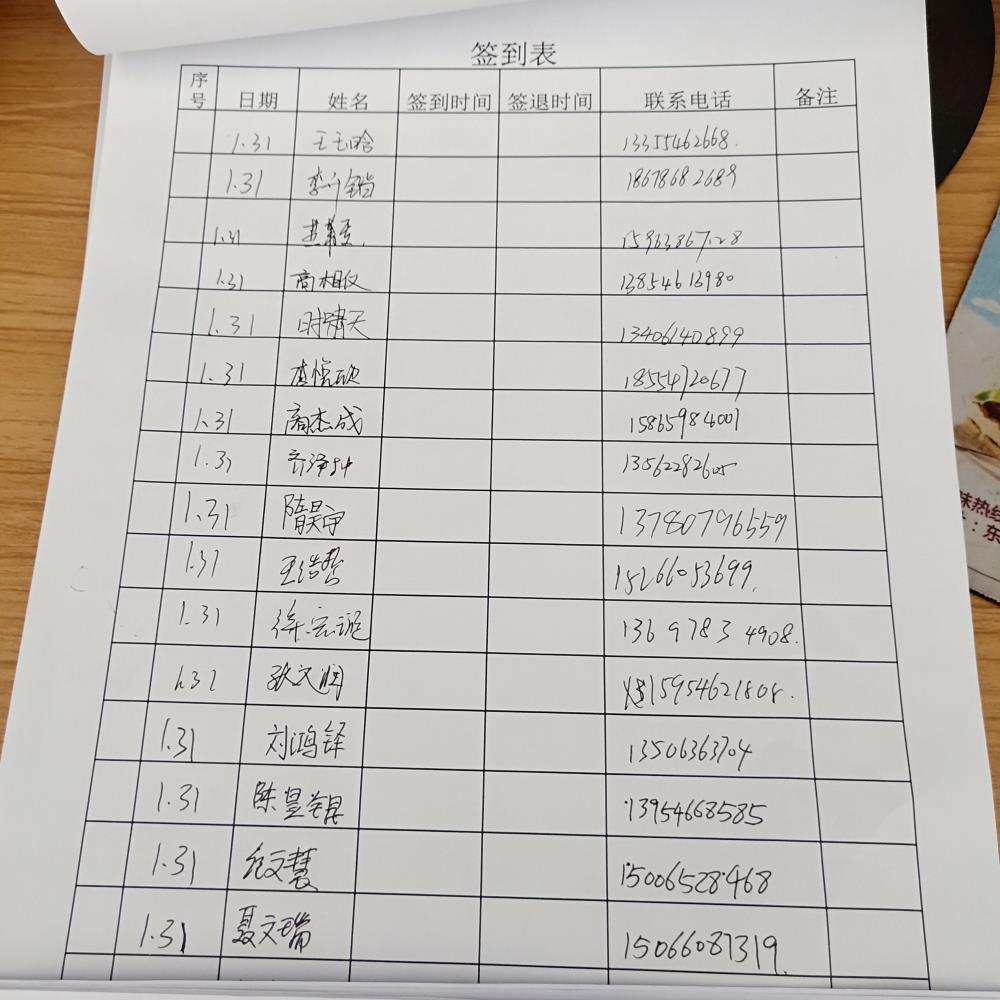 签到表
序号 日期 姓名 签到时间 签退时间 联系电话 备注
1.31 王玉晗 13355462668.
1.31 18678682689
1.31 15963867128
1.31 商相仪 13854613980
1.31 时啸天 13406140899
1.31 18554720677
1.31 商杰成 15865984001
1.31 13562282605
1.31 隋昊宇 13780796559
1.31 王浩哲 15266053699.
1.31 徐宏诞 13697834908.
1.31 张文润 15954621808.
1.31 刘鸿铎 13506363704
1.31 陈昱锟 13954668585
1.31 文慧 15006528468
1.31 夏文瑞 15066087319.
味热
:东